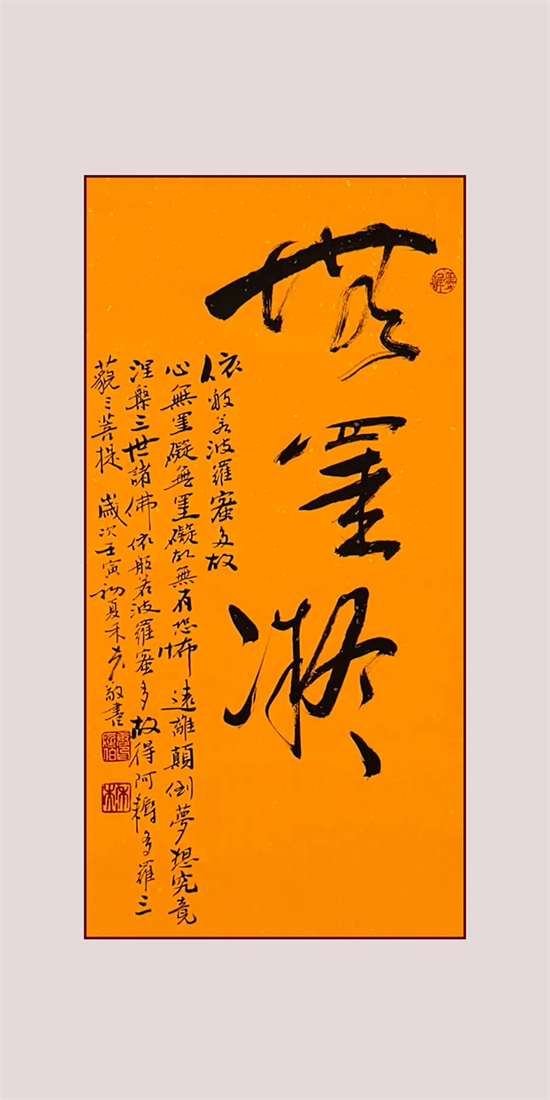 無罣礙
依般若波羅蜜多故
心無罣礙無罣礙故無有恐怖遠離顛倒夢想究竟
涅槃三世諸佛依般若波羅蜜多故得阿耨多羅三
藐三菩提 歲次壬寅初夏禾敬書